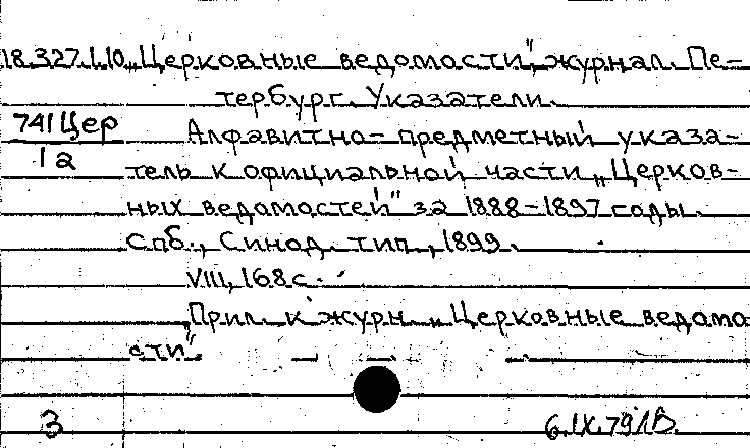 18.327.1.10 „Церковные ведомости", журнал. Пе-
тербург. Указатели.
741 Цер
1а
Алфавитно-предметный указа-
тель к официальной части „Церков-
ных ведомостей" за 1888-1897 годы.
Спб., Синод. тип., 1899.
VIII, 168 с.
Прил. к журн. „Церковные ведомо
сти"
3
6.IX.79